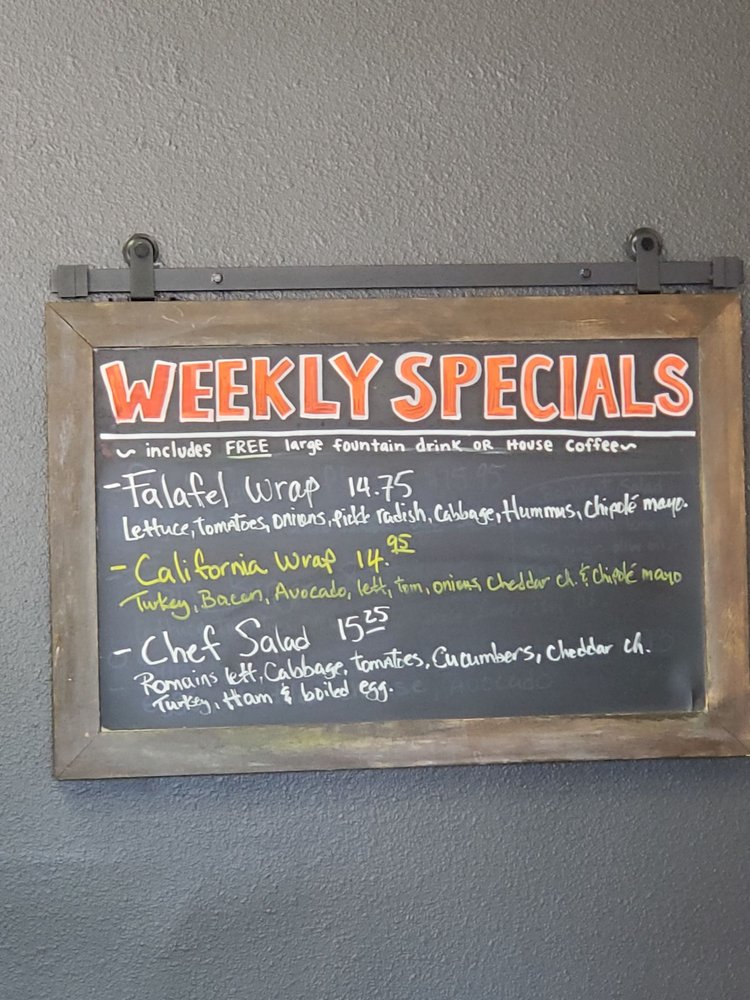 WEEKLY SPECIALS
~ includes FREE large fountain drink OR House Coffee~
-Falafel Wrap 14.75
Lettuce, Tomatoes, Onions, Pickle radish, Cabbage, Hummus, Chipolé mayo.
- California Wrap 14.95
Turkey, Bacon, Avocado, lett, tom, onions, Cheddar ch. & Chipolé mayo
- Chef Salad 15.25
Romains lett, Cabbage, tomatoes, Cucumbers, Cheddar ch.
Turkey, Ham & boiled egg.